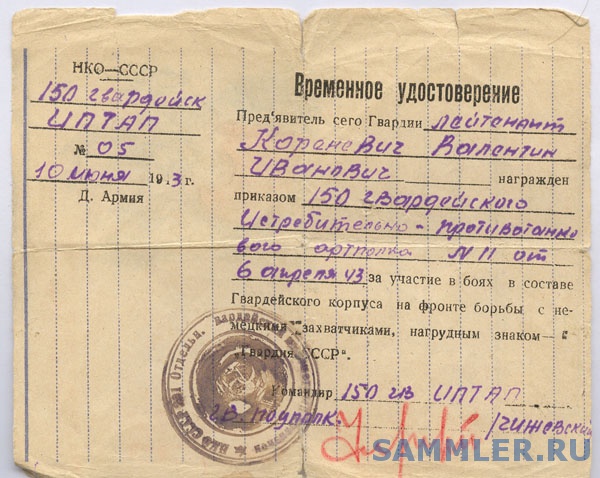 НКО—СССР
150 гвардейск
ИПТАП
№ 05
10 июня 1943 г.
Д. Армия
Временное удостоверение
Пред'явитель сего Гвардии лейтенант
Кораневич Валентин
Иванович награжден
приказом 150 гвардейского
Истребительно-противотанко
вого артполка N 11 от
6 апреля 43 за участие в боях в составе
Гвардейского корпуса на фронте борьбы с не-
мецкими захватчиками, нагрудным знаком—
„Гвардия СССР".
Командир 150 гв ИПТАП
гв подполк. /Чижевский
НКО СССР
SAMMLER.RU